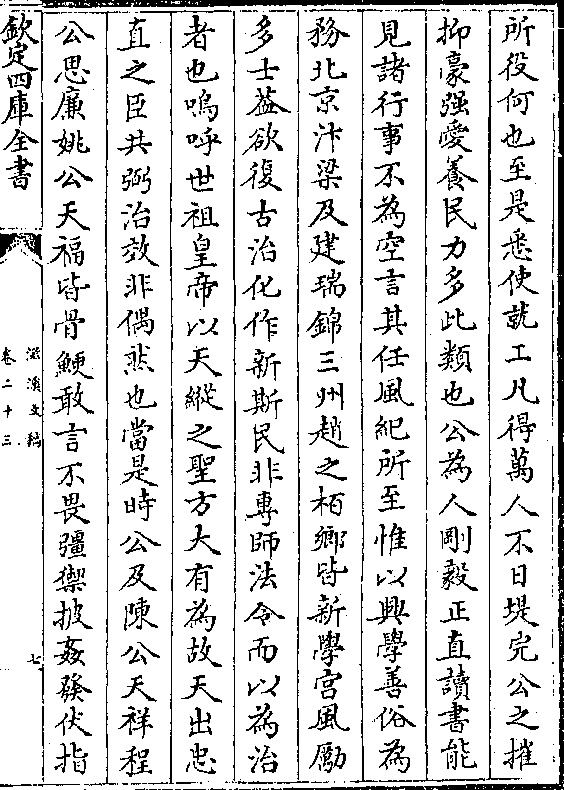 所役何也至是悉使就工凡得萬人不日堤完公之摧
抑豪强愛養民力多此類也公為人剛毅正直讀書能
見諸行事不為空言其任風紀所至惟以興學善俗為
務北京汴梁及建瑞錦三州趙之柏鄉皆新學宫風勵
多士葢欲復古治化作新斯民非專師法令而以為治
者也嗚呼世祖皇帝以天縱之聖方大有為故天出忠
直之臣共弼治效非偶然也當是時公及陳公天祥程
公思廉姚公天福皆骨鯁敢言不畏彊禦披姦發伏指
欽定四庫全書
滋溪文稿
卷二十三
七